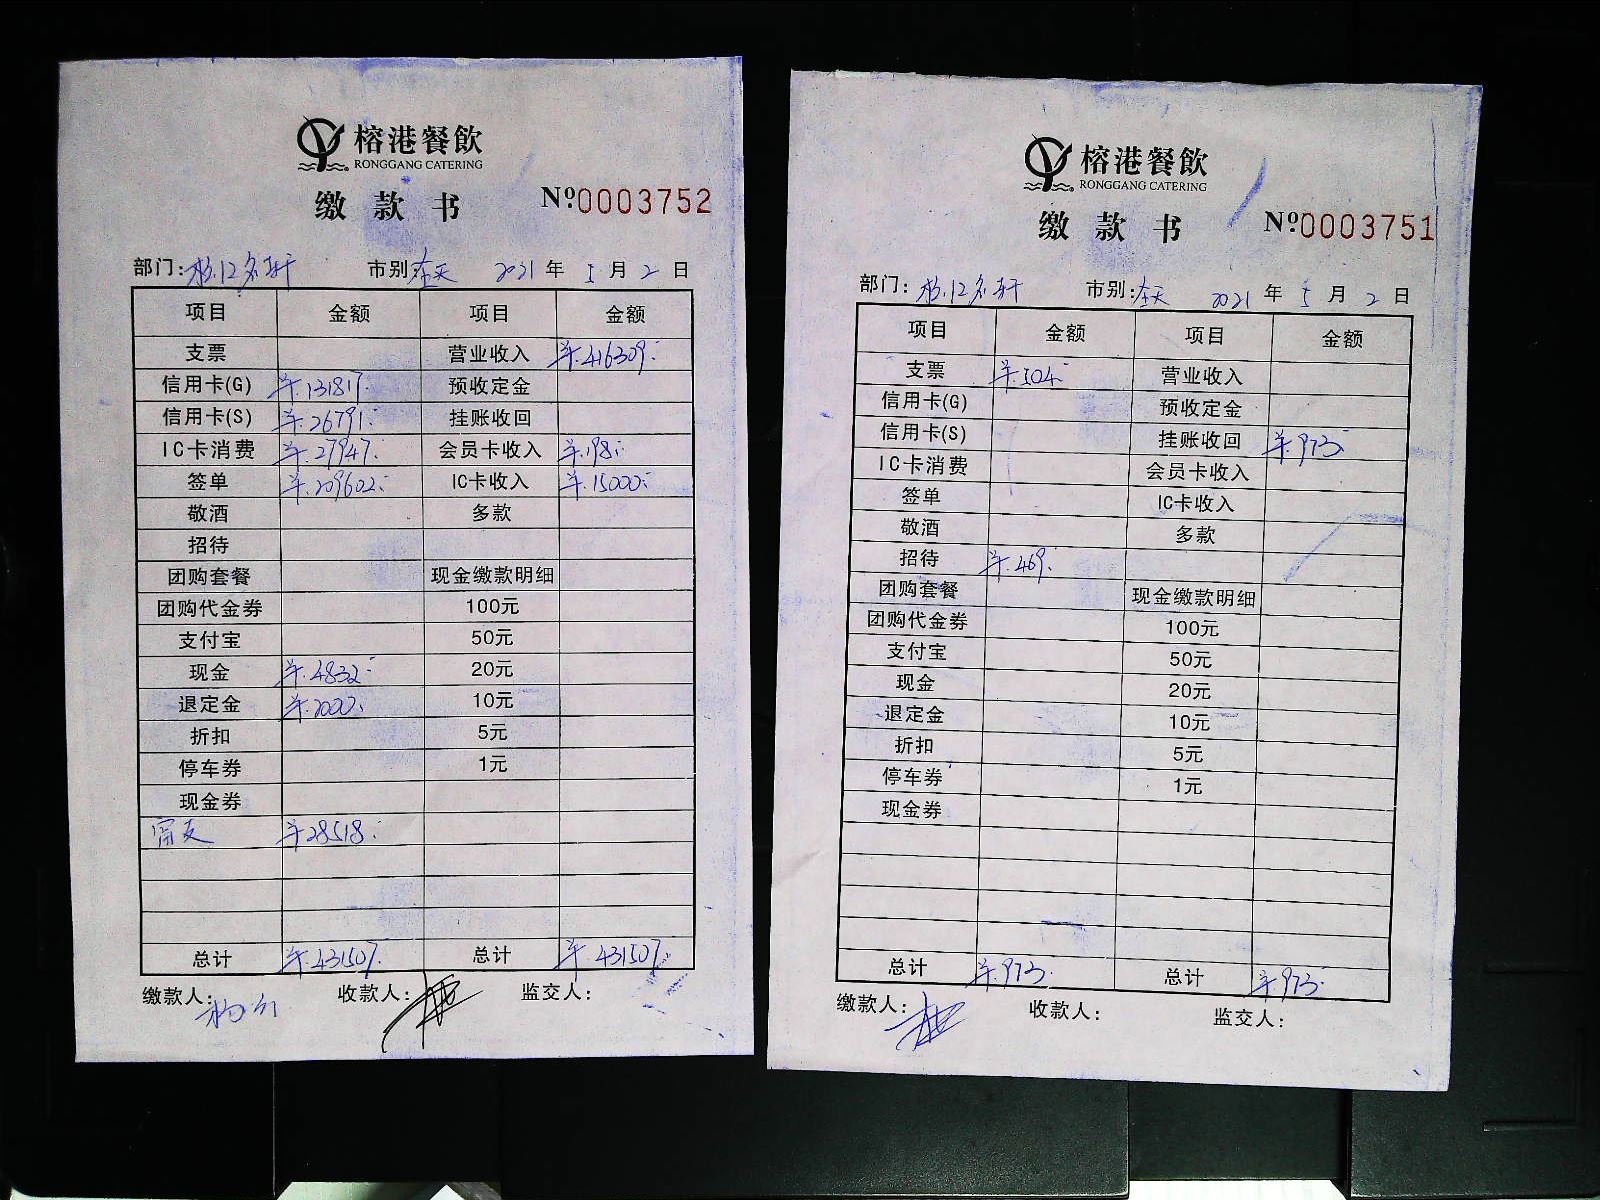 榕港餐飲
RONGGANG CATERING
缴款书
Nº0003752
部门: 名轩 市别: 全天 2021年5月2日
项目 金额 项目 金额
支票 营业收入 ¥.416309.-
信用卡(G) ¥.131817.- 预收定金
信用卡(S) ¥.26791.- 挂账收回
IC卡消费 ¥.27947.- 会员卡收入 ¥.198.-
签单 ¥.209602.- IC卡收入 ¥.15000.-
敬酒 多款
招待
团购套餐 现金缴款明细
团购代金券 100元
支付宝 50元
现金 ¥.4832.- 20元
退定金 ¥.2000.- 10元
折扣 5元
停车券 1元
现金券
¥28518.-
总计 ¥.431507.- 总计 ¥.431507.-
缴款人: 收款人: 监交人:
榕港餐飲
RONGGANG CATERING
缴款书
Nº0003751
部门: 名轩 市别: 全天 2021年5月2日
项目 金额 项目 金额
支票 ¥.504.- 营业收入
信用卡(G) 预收定金
信用卡(S) 挂账收回 ¥.973.-
IC卡消费 会员卡收入
签单 IC卡收入
敬酒 多款
招待 ¥.469.-
团购套餐 现金缴款明细
团购代金券 100元
支付宝 50元
现金 20元
退定金 10元
折扣 5元
停车券 1元
现金券
总计 ¥.973.- 总计 ¥.973.-
缴款人: 收款人: 监交人: